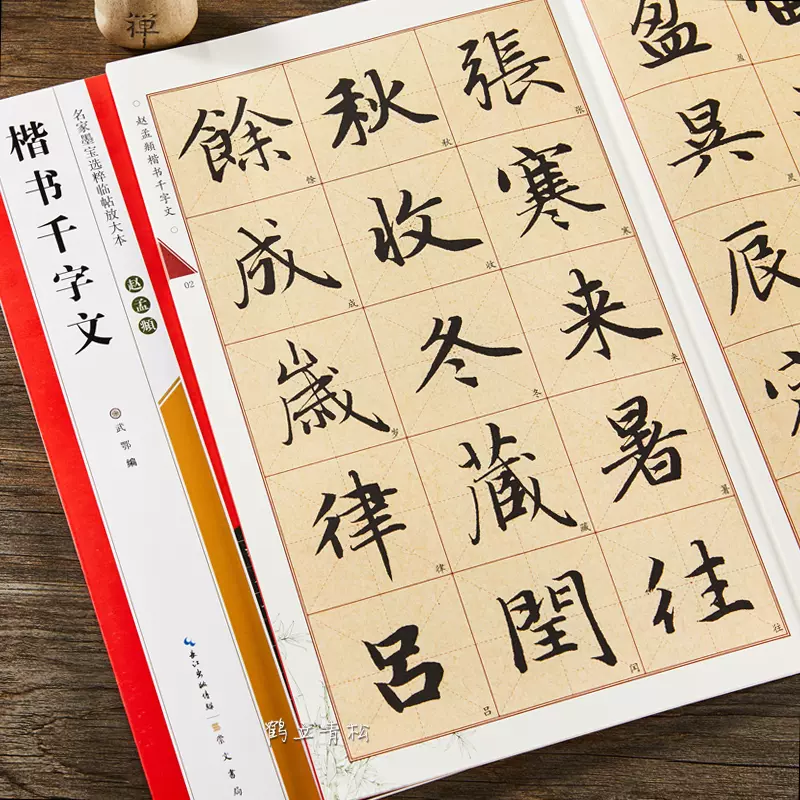 禪
楷书千字文
名家墨宝选粹临帖放大本
赵孟頫
武鄂 编
长江出版传媒
崇文书局
赵孟頫楷书千字文
02
盈昃辰
盈昃
張寒来暑往
张寒来暑往
秋收冬藏閏
秋收冬藏闰
餘成歲律呂
余成岁律吕
鹤立青松